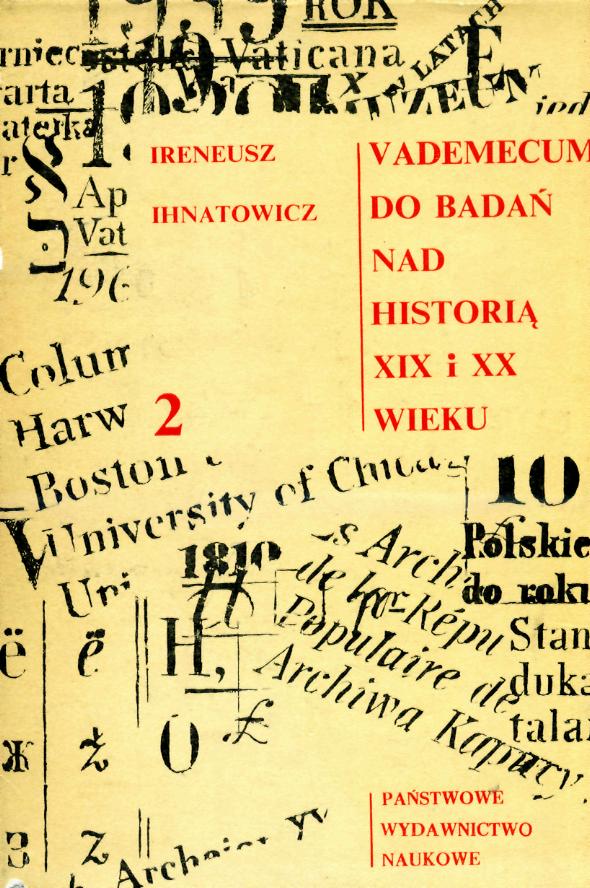 ROK
Vaticana
W LATACH
arta
IRENEUSZ
IHNATOWICZ
VADEMECUM
DO BADAŃ
NAD
HISTORIĄ
XIX i XX
WIEKU
2
Ap
Vat
196
Colum
Harw
Boston
University of Chicag
10
1810
Uni
s Arch
de la Répu
Populaire de
Archiwa Kapucy
Polskie
do roku
Stan
duka
talar
ë ë H,
O £
ж ż
з z
PAŃSTWOWE
WYDAWNICTWO
NAUKOWE